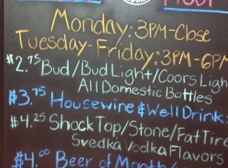 Monday: 3PM-Close
Tuesday-Friday: 3PM-6PM
$2.75 Bud/Bud Light/Coors Light
All Domestic Bottles
$3.75 Housewine & Well Drinks
$4.25 Shock Top/Stone/Fat Tire
Svedka Vodka Flavors
$4.00 Beer of Month